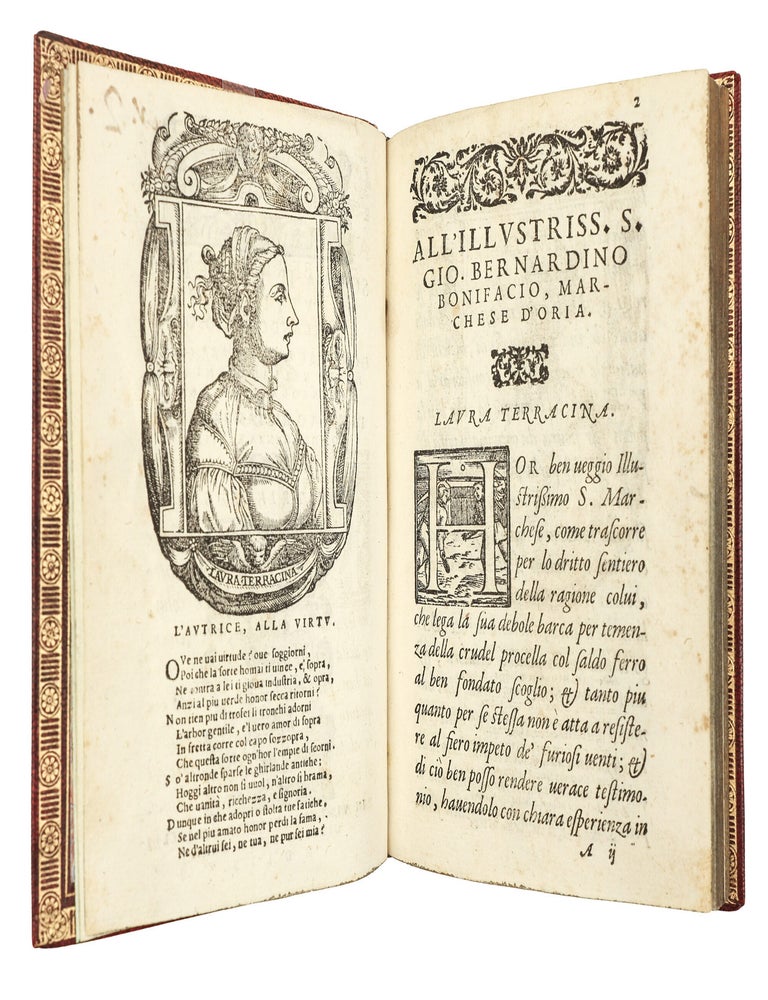 LAVRA TERRACINA
L'AVTRICE, ALLA VIRTV.
OVe ne uai uirtude? oue soggiorni,
Poi che la sorte homai ti uince, e sopra,
Ne contra a lei ti gioua industria, & opra,
Anzi al piu uerde honor secca ritorni?
Non tien piu di trofei li tronchi adorni
L'arbor gentile, e'l uero amor di sopra
In fretta corre col capo sozzopra,
Che questa sorte ogn'hor l'empie di scorni.
So' altronde sparse le ghirlande antiche:
Hoggi altro non si uuol, n'altro si brama,
Che uanità, ricchezza, e signoria.
Dunque in che adopri o stolta tue fatiche,
Se nel piu amato honor perdi la fama,
Ne d'altrui sei, ne tua, ne pur sei mia?
2
ALL'ILLVSTRISS. S.
GIO. BERNARDINO
BONIFACIO, MAR-
CHESE D'ORIA.
LAVRA TERRACINA.
HOR ben ueggio Illu-
strißimo S. Mar-
chese, come trascorre
per lo dritto sentiero
della ragione colui,
che lega la sua debole barca per temen-
za della crudel procella col saldo ferro
al ben fondato scoglio; & tanto piu
quanto per se stessa non è atta a resiste-
re al fiero impeto de' furiosi uenti; &
di ciò ben posso rendere uerace testimo-
nio, hauendolo con chiara esperienza in
A ij